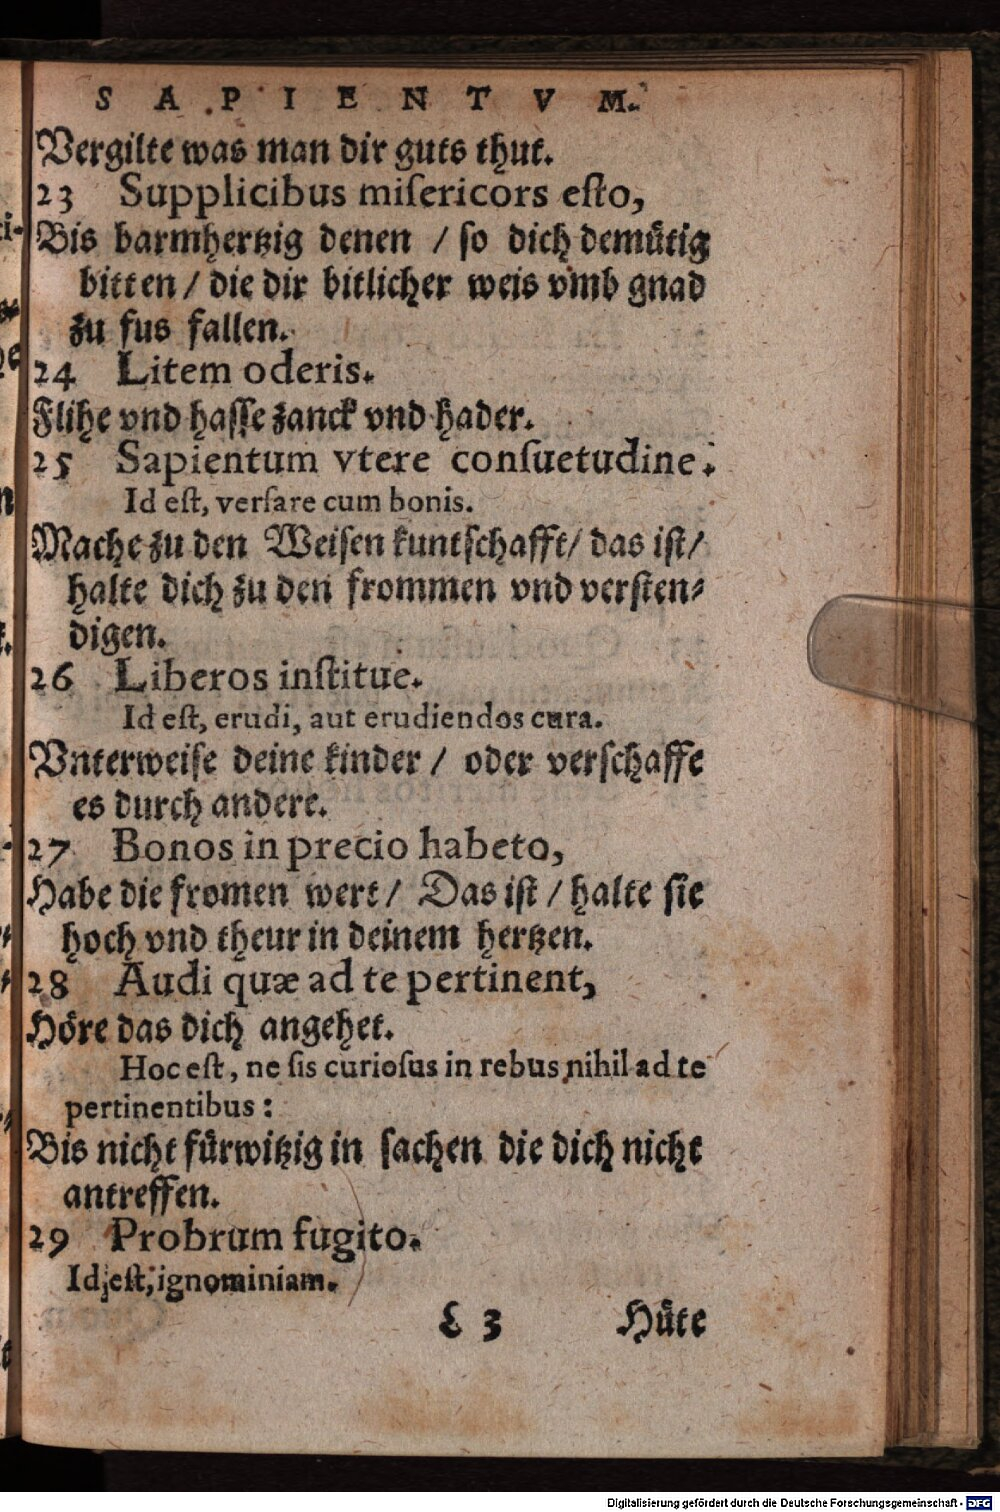 SAPIENTVM.
Vergilte was man dir guts thut.
23 Supplicibus miſericors eſto,
Bis barmhertzig denen / ſo dich demuͤtig
bitten / die dir bitlicher weis vmb gnad
zu fus fallen.
24 Litem oderis.
Flihe vnd haſſe zanck vnd hader.
25 Sapientum vtere conſuetudine.
Id eſt, verſare cum bonis.
Mache zu den Weiſen kuntſchafft/ das iſt/
halte dich zu den frommen vnd verſten⸗
digen.
26 Liberos inſtitue.
Id eſt, erudi, aut erudiendos cura.
Vnterweiſe deine kinder / oder verſchaffe
es durch andere.
27 Bonos in precio habeto,
Habe die fromen wert / Das iſt / halte ſie
hoch vnd theur in deinem hertzen.
28 Audi quæ ad te pertinent,
Hoͤre das dich angehet.
Hoc eſt, ne ſis curioſus in rebus nihil ad te
pertinentibus:
Bis nicht fuͤrwitzig in ſachen die dich nicht
antreffen.
29 Probrum fugito.
Id eſt, ignominiam.
3 Huͤte
Digitalisierung gefördert durch die Deutsche Forschungsgemeinschaft - DFG